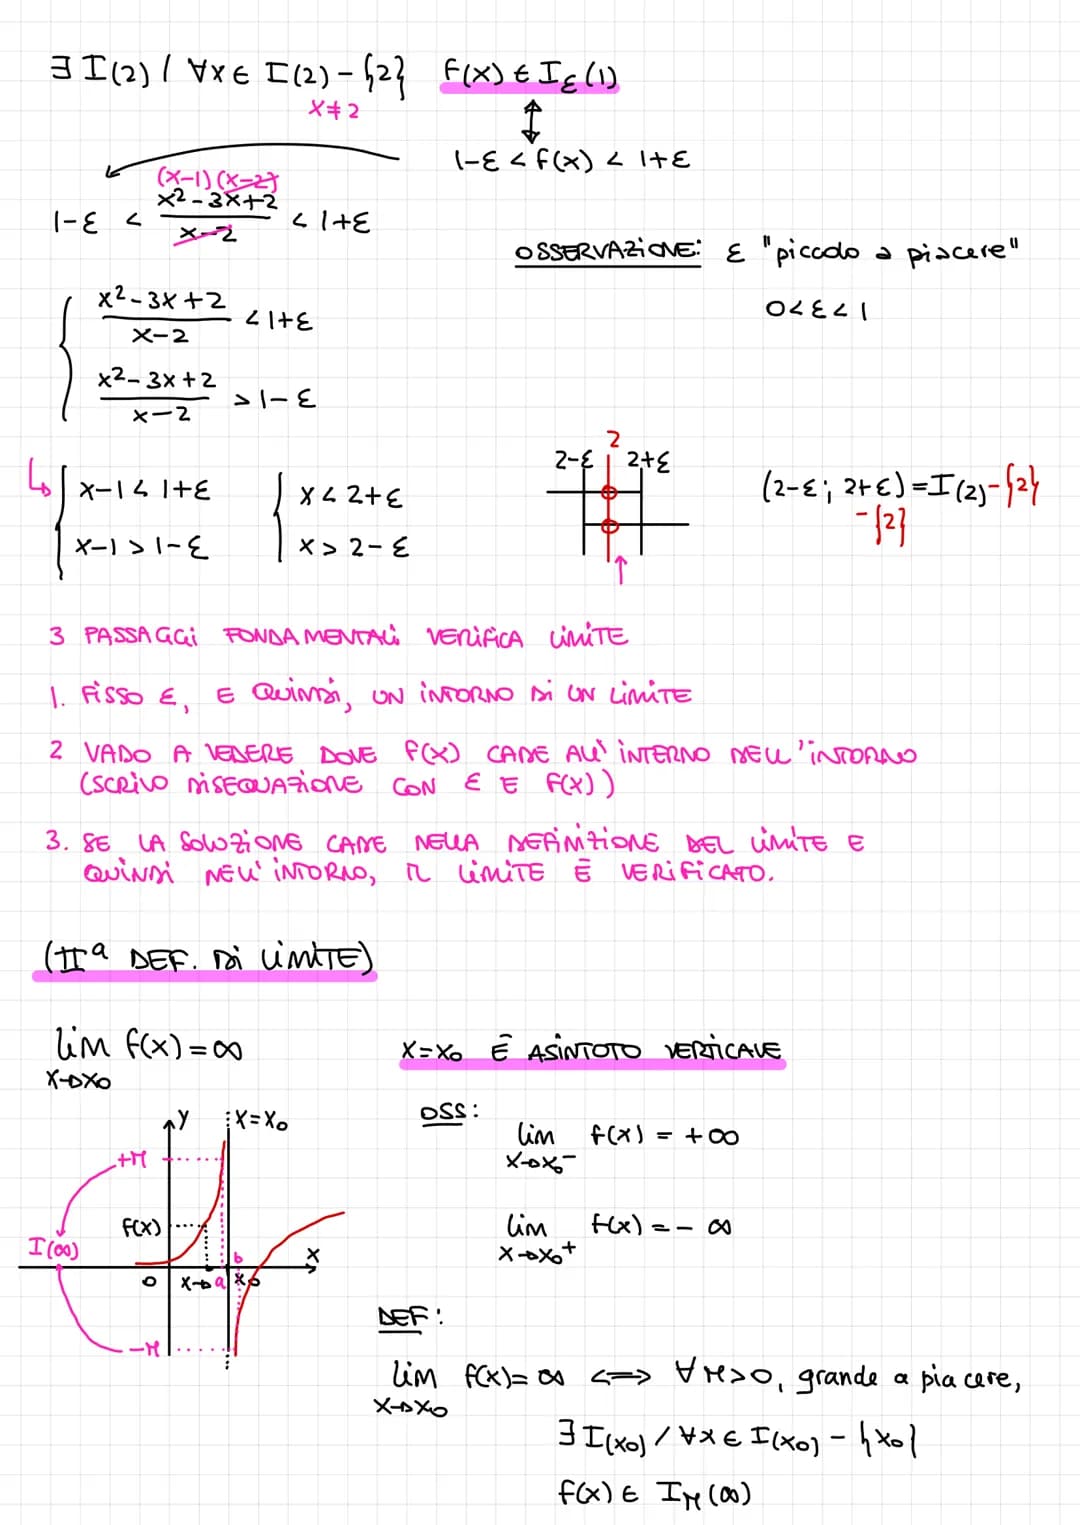 ∃ I(2) / ∀x ∈ I(2) - {2} f(x) ∈ Iε(1)
x ≠ 2
↕
1-ε < f(x) < 1+ε
(x-1)(x-2)
1-ε < x²-3x+2 / x-2 < 1+ε
OSSERVAZIONE: ε "piccolo a piacere"
0<ε<1
x²-3x+2 / x-2 < 1+ε
x²-3x+2 / x-2 > 1-ε
2
2-ε 2+ε
x-1 < 1+ε x < 2+ε
x-1 > 1-ε x > 2-ε
(2-ε; 2+ε) = I(2) - {2}
- {2}
3 PASSAGGI FONDAMENTALI VERIFICA LIMITE
1. FISSO ε, E QUINDI, UN INTORNO DI UN LIMITE
2 VADO A VEDERE DOVE f(x) CADE ALL' INTERNO DELL'INTORNO
(SCRIVO DISEQUAZIONE CON ε E f(x))
3. SE LA SOLUZIONE CADE NELLA DEFINIZIONE DEL LIMITE E
QUINDI NELL' INTORNO, IL LIMITE È VERIFICATO.
(IIª DEF. DI LIMITE)
lim f(x) = ∞
x→x₀
x=x₀ È ASINTOTO VERTICALE
y x=x₀
+M
f(x)
I(∞)
b
x
0 x→ a x₀
-M
OSS:
lim f(x) = +∞
x→x₀⁻
lim f(x) = -∞
x→x₀⁺
DEF:
lim f(x) = ∞ <=> ∀ M>0, grande a piacere,
x→x₀
∃ I(x₀) / ∀x ∈ I(x₀) - {x₀}
f(x) ∈ I_M(∞)